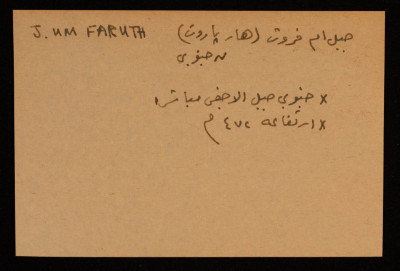 J. UM FARUTH
جبل ام فروث (هار پاروت)
جنوبي
x جنوبي جبل الاجفى مباشرة
x ارتفاعه ٤٧٢ م